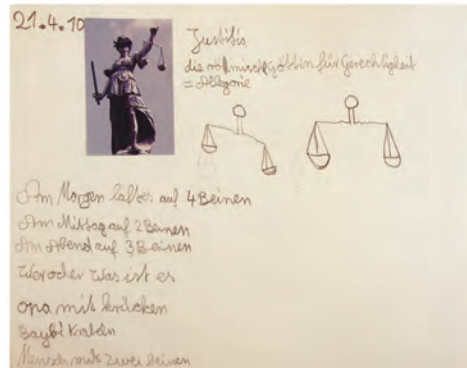 21.4.10
Justitia
die römische Göttin für Gerechtigkeit
= Allegorie
Am Morgen läft es auf 4 Beinen
Am Mittag auf 2 Beinen
Am Abend auf 3 Beinen
Wer oder was ist es
opa mit krücken
Baybi krabeln
Mensch mit zwei beinen